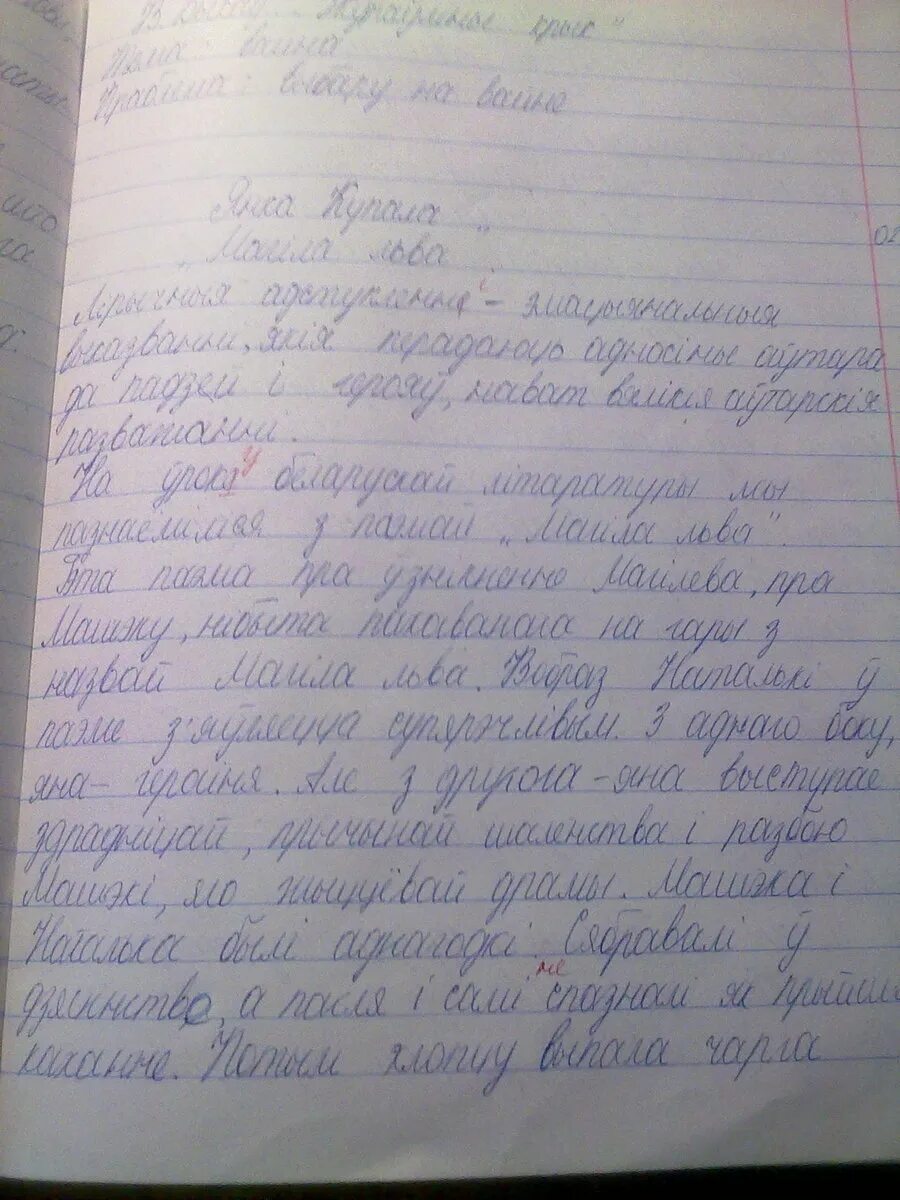 В. Быкаў „Жураўліны крык"
Тэма: вайна
Праблема: выбару на вайне
Янка Купала
„Магіла льва"
Лірычныя адступленні – эмацыянальныя
выказванні, якія перадаюць адносіны аўтара
да падзей і герояў, нават вялікія аўтарскія
разважанні.
На уроку беларускай літаратуры мы
пазнаёміліся з паэмай „Магіла льва".
Гэта паэма пра ўзнікненне Магілева, пра
Машэку, нібыта пахаванага на гары з
назвай Магіла льва. Вобраз Наталькі ў
паэме з'яўляецца супярэчлівым. З аднаго боку,
яна – гераіня. Але з другога – яна выступае
здрадніцай, прычынай шаленства і разбою
Машэкі, яго жыццёвай драмы. Машэка і
Наталька былі аднагодкі. Сябравалі ў
дзяцінстве, а пасля і самі не спазналі як прыйшл
каханне. Потым хлопцу выпала чарга